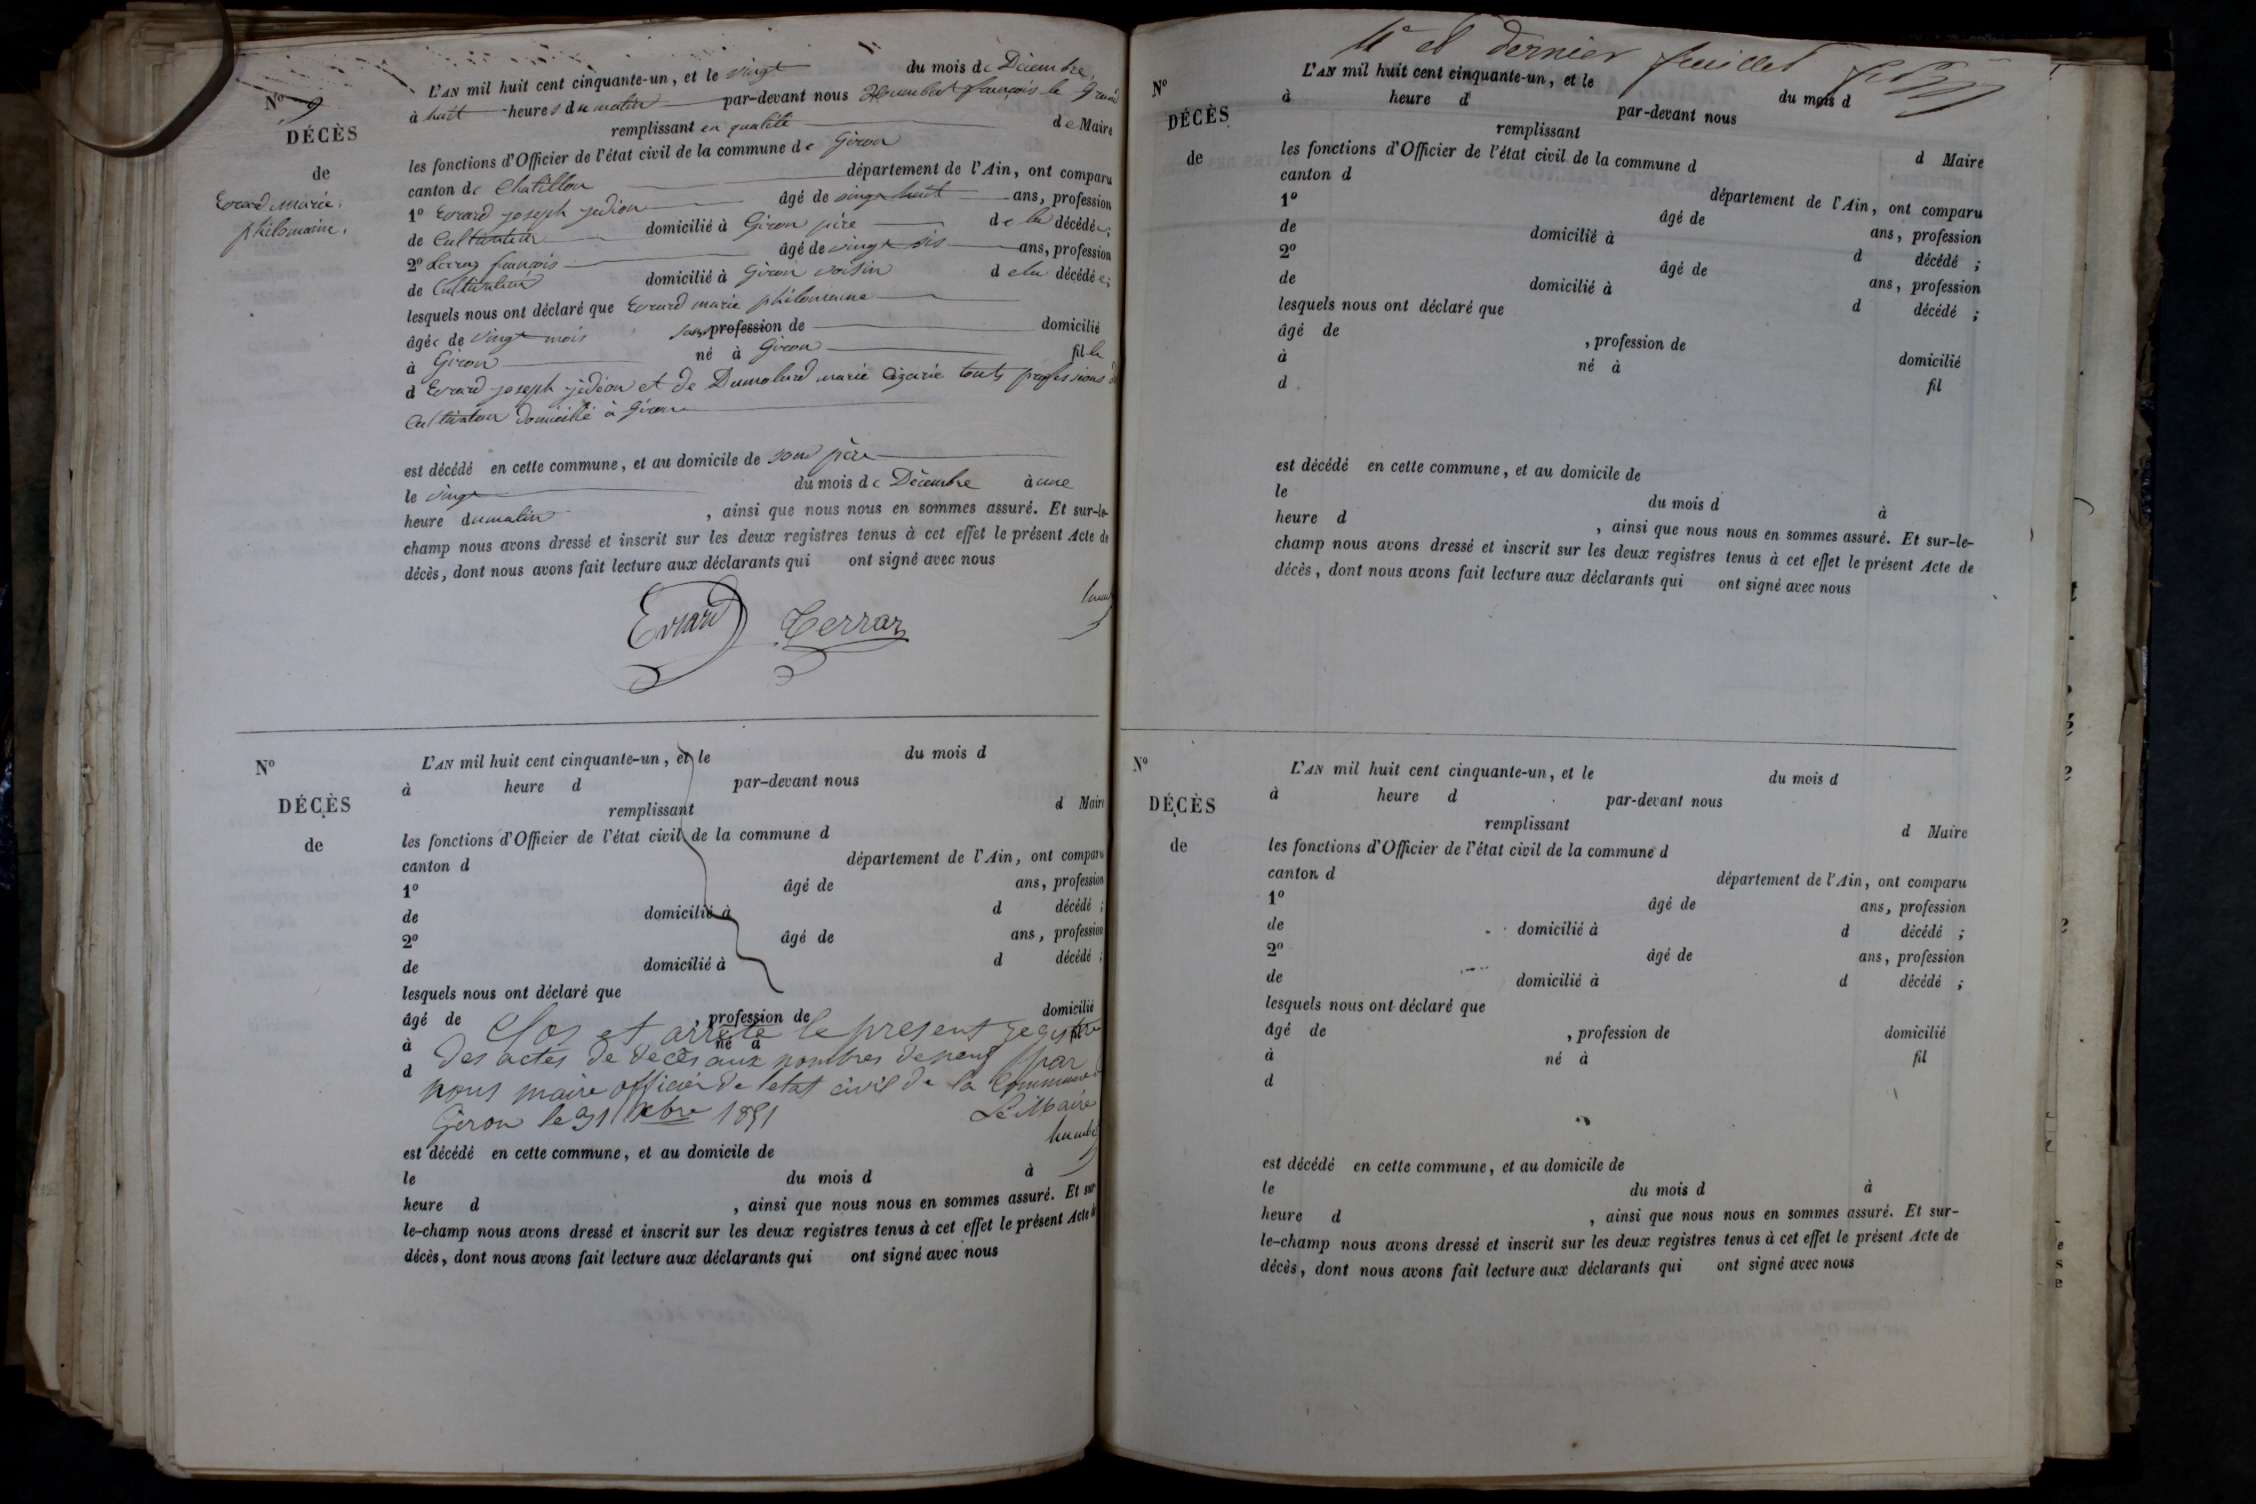 L'AN mil huit cent cinquante-un, et le vingt du mois de Décembre,
à huit heures du matin par-devant nous Humbert françois le Grand
remplissant en qualité de Maire
les fonctions d'Officier de l'état civil de la commune de Giron
canton de Chatillon département de l'Ain, ont comparu
1º Evrard joseph jedion âgé de vingt huit ans, profession
de Cultivateur domicilié à Giron père de la décédée;
2º françois âgé de vingt sis ans, profession
de Cultivateur domicilié à Giron voisin de la décédée;
lesquels nous ont déclaré que Evrard marie philomaine
âgée de vingt mois sans profession de domicilié
à Giron né à Giron fille
d Evrard joseph jédion et de Dumolard marie touts professions d
Cultivateur domicillé à Giron
est décédé en cette commune, et au domicile de son père
le vingt du mois de Décembre à une
heure du matin, ainsi que nous nous en sommes assuré. Et sur-le-
champ nous avons dressé et inscrit sur les deux registres tenus à cet effet le présent Acte de
décès, dont nous avons fait lecture aux déclarants qui ont signé avec nous
Nº 9
DÉCÈS
de
Evrard marie
philomaine.
Evrard Perraz
Nº
DÉCÈS
de
L'AN mil huit cent cinquante-un, et le du mois d
à heure d par-devant nous
remplissant d Maire
les fonctions d'Officier de l'état civil de la commune d
canton d département de l'Ain, ont comparu
1º âgé de ans, profession
de domicilié à d décédé ;
2º âgé de ans, profession
de domicilié à d décédé ;
lesquels nous ont déclaré que
âgé de , profession de domicilié
à né à fil
d
Clos et arrêté le present registre
des actes de decès aux nombres de neuf par
nous maire officier de letat civil de la Commune d
Giron le 31 Xbre 1851 Le Maire
est décédé en cette commune, et au domicile de
le du mois d à
heure d , ainsi que nous nous en sommes assuré. Et sur
le-champ nous avons dressé et inscrit sur les deux registres tenus à cet effet le présent Acte d
décès, dont nous avons fait lecture aux déclarants qui ont signé avec nous
11e et dernier feuillet
Nº
DÉCÈS
de
L'AN mil huit cent cinquante-un, et le du mois d
à heure d par-devant nous
remplissant d Maire
les fonctions d'Officier de l'état civil de la commune d
canton d département de l'Ain, ont comparu
1º âgé de ans, profession
de domicilié à d décédé ;
2º âgé de ans, profession
de domicilié à d décédé ;
lesquels nous ont déclaré que
âgé de , profession de domicilié
à né à fil
d
est décédé en cette commune, et au domicile de
le du mois d à
heure d , ainsi que nous nous en sommes assuré. Et sur-le-
champ nous avons dressé et inscrit sur les deux registres tenus à cet effet le présent Acte de
décès, dont nous avons fait lecture aux déclarants qui ont signé avec nous
Nº
DÉCÈS
de
L'AN mil huit cent cinquante-un, et le du mois d
à heure d par-devant nous
remplissant d Maire
les fonctions d'Officier de l'état civil de la commune d
canton d département de l'Ain, ont comparu
1º âgé de ans, profession
de domicilié à d décédé ;
2º âgé de ans, profession
de domicilié à d décédé ;
lesquels nous ont déclaré que
âgé de , profession de domicilié
à né à fil
d
est décédé en cette commune, et au domicile de
le du mois d à
heure d , ainsi que nous nous en sommes assuré. Et sur-
le-champ nous avons dressé et inscrit sur les deux registres tenus à cet effet le présent Acte de
décès, dont nous avons fait lecture aux déclarants qui ont signé avec nous